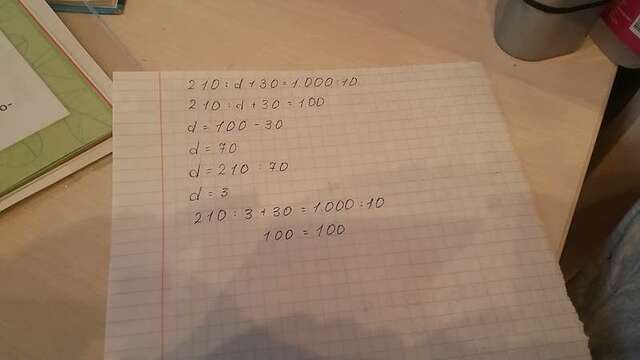 210 : d + 30 = 1.000 : 10
210 : d + 30 = 100
d = 100 - 30
d = 70
d = 210 : 70
d = 3
210 : 3 + 30 = 1.000 : 10
100 = 100